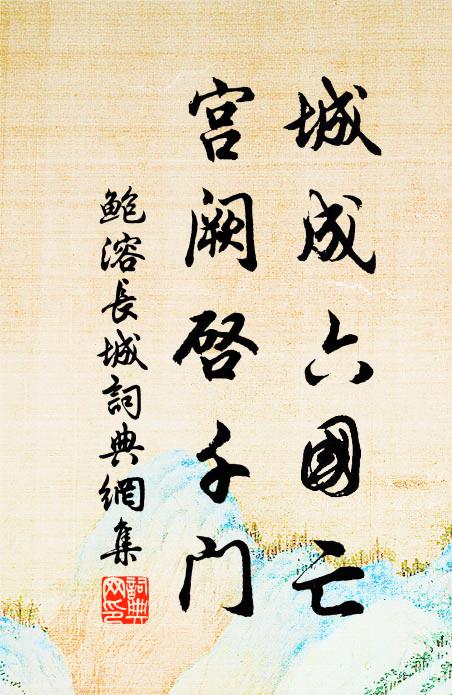 城成六國亡
宫阙啓千门
鲍溶長城詞典網集
詞典网印